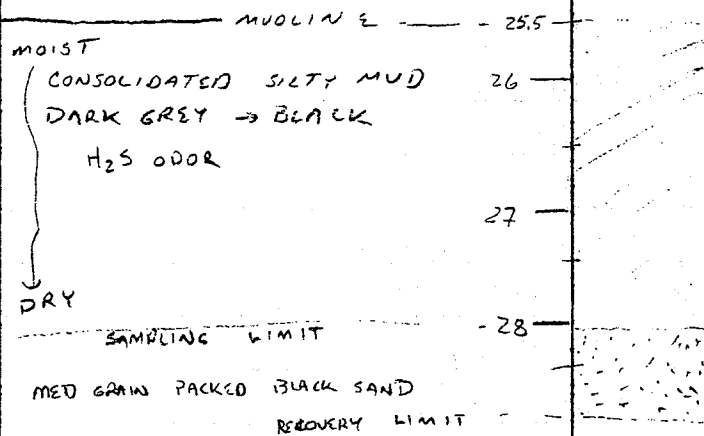 MUDLINE - 25.5
MOIST
CONSOLIDATED SILTY MUD 26
DARK GREY → BLACK
H₂S ODOR
27
DRY
SAMPLING LIMIT - 28
MED GRAIN PACKED BLACK SAND
RECOVERY LIMIT